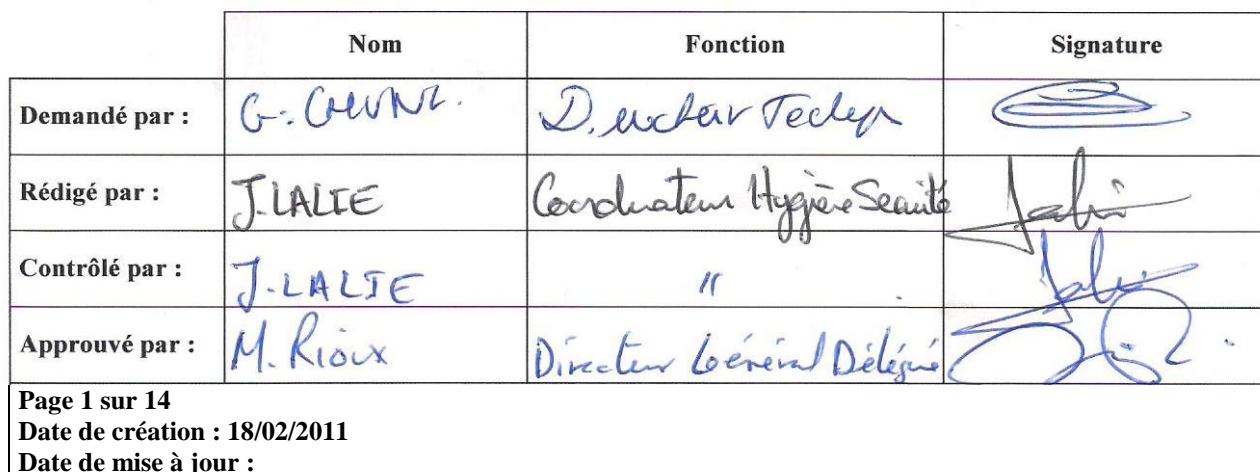 Nom Fonction Signature
Demandé par : G.
Rédigé par : J. LALIE Coordinateur Hygiène Sécurité
Contrôlé par : J. LALIE "
Approuvé par : M. Rioux Directeur Général Délégué
Page 1 sur 14
Date de création : 18/02/2011
Date de mise à jour :